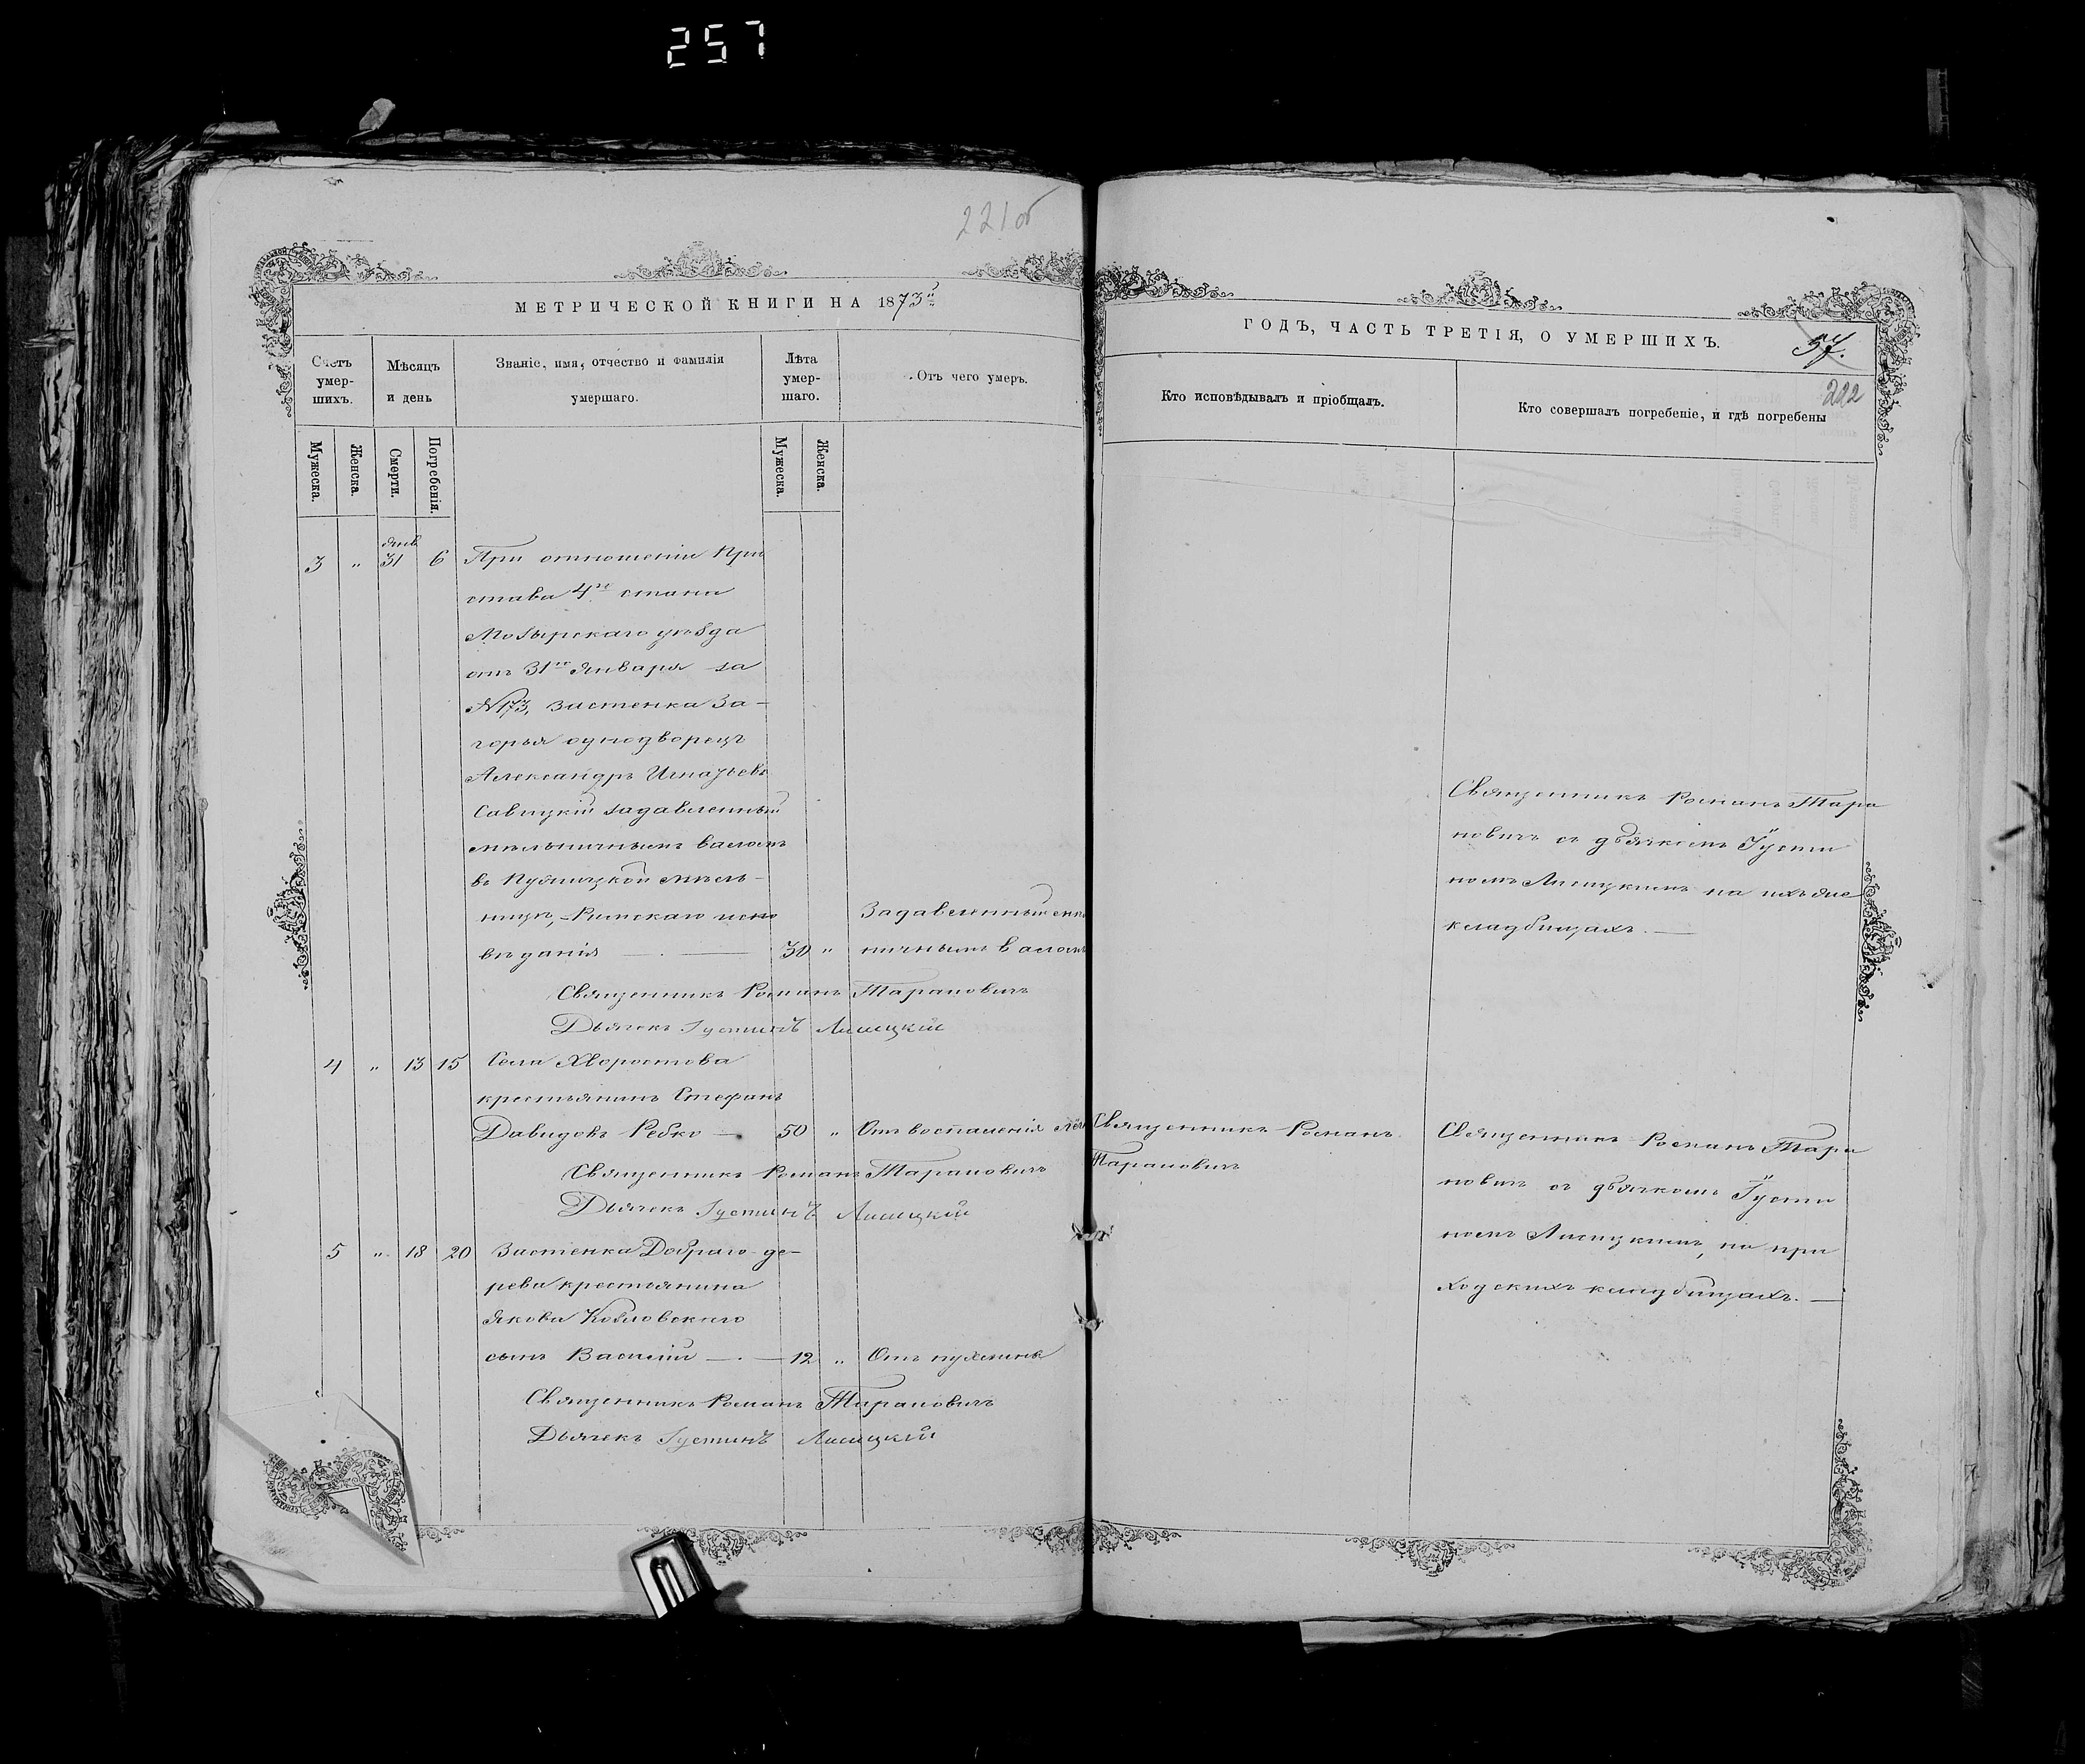 257
221об
МЕТРИЧЕСКОЙ КНИГИ НА 1873й
Счетъ умер-шихъ.
Мѣсяцъ и день
Званіе, имя, отчество и фамилія умершаго.
Лѣта умер-шаго.
Отъ чего умеръ.
Мужеска.
Женска.
Смерти.
Погребенія.
Мужеска.
Женска.
3 „ Янв. 31 6 При отношеніи При
става 4го стана
Мозырскаго уѣзда
отъ 31го Января за
№173, застенка За-
горья однодворецъ
Александръ Игнатьевъ
Савицкій задавленный
мѣльничнымъ валомъ
въ
ницѣ, Римскаго испо
вѣданія — . — 30 „
Задавленный
ничнымъ валомъ
Священникъ Романъ Тарановичъ
Дьячекъ Іустинъ Лисицкій
4 „ 13 15 Села Хворостова
крестьянинъ Стефанъ
Давидовъ Ребко — 50 „ Отъ воспаленія
Священникъ Романъ Тарановичъ
Дьячекъ Іустинъ Лисицкій
5 „ 18 20 Застенка Добраго-де-
рева крестьянина
Якова Козловскаго
сынъ Василій — . — 12 „ Отъ пухлины
Священникъ Романъ Тарановичъ
Дьячекъ Іустинъ Лисицкій
ГОДЪ, ЧАСТЬ ТРЕТІЯ, О УМЕРШИХЪ.
57.
222
Кто исповѣдывалъ и пріобщалъ.
Кто совершалъ погребеніе, и гдѣ погребены
Священникъ Романъ Тара
новичъ съ дьячкомъ Іусти
номъ Лисицкимъ на ихъ же
кладбищахъ. —
Священникъ Романъ
Тарановичъ
Священникъ Романъ Тара
новичъ съ дьячкомъ Іусти
номъ Лисицкимъ, на при
ходскихъ кладбищахъ. —